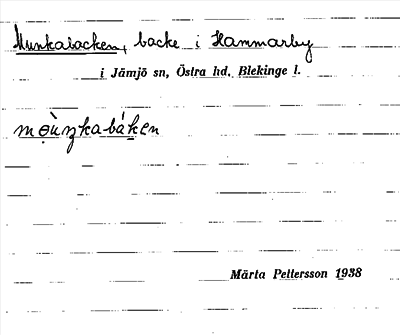 Munkabacken, backe i Hammarby
i Jämjö sn, Östra hd, Blekinge l.
mo̤ùŋkabákен
Märta Pettersson 1938